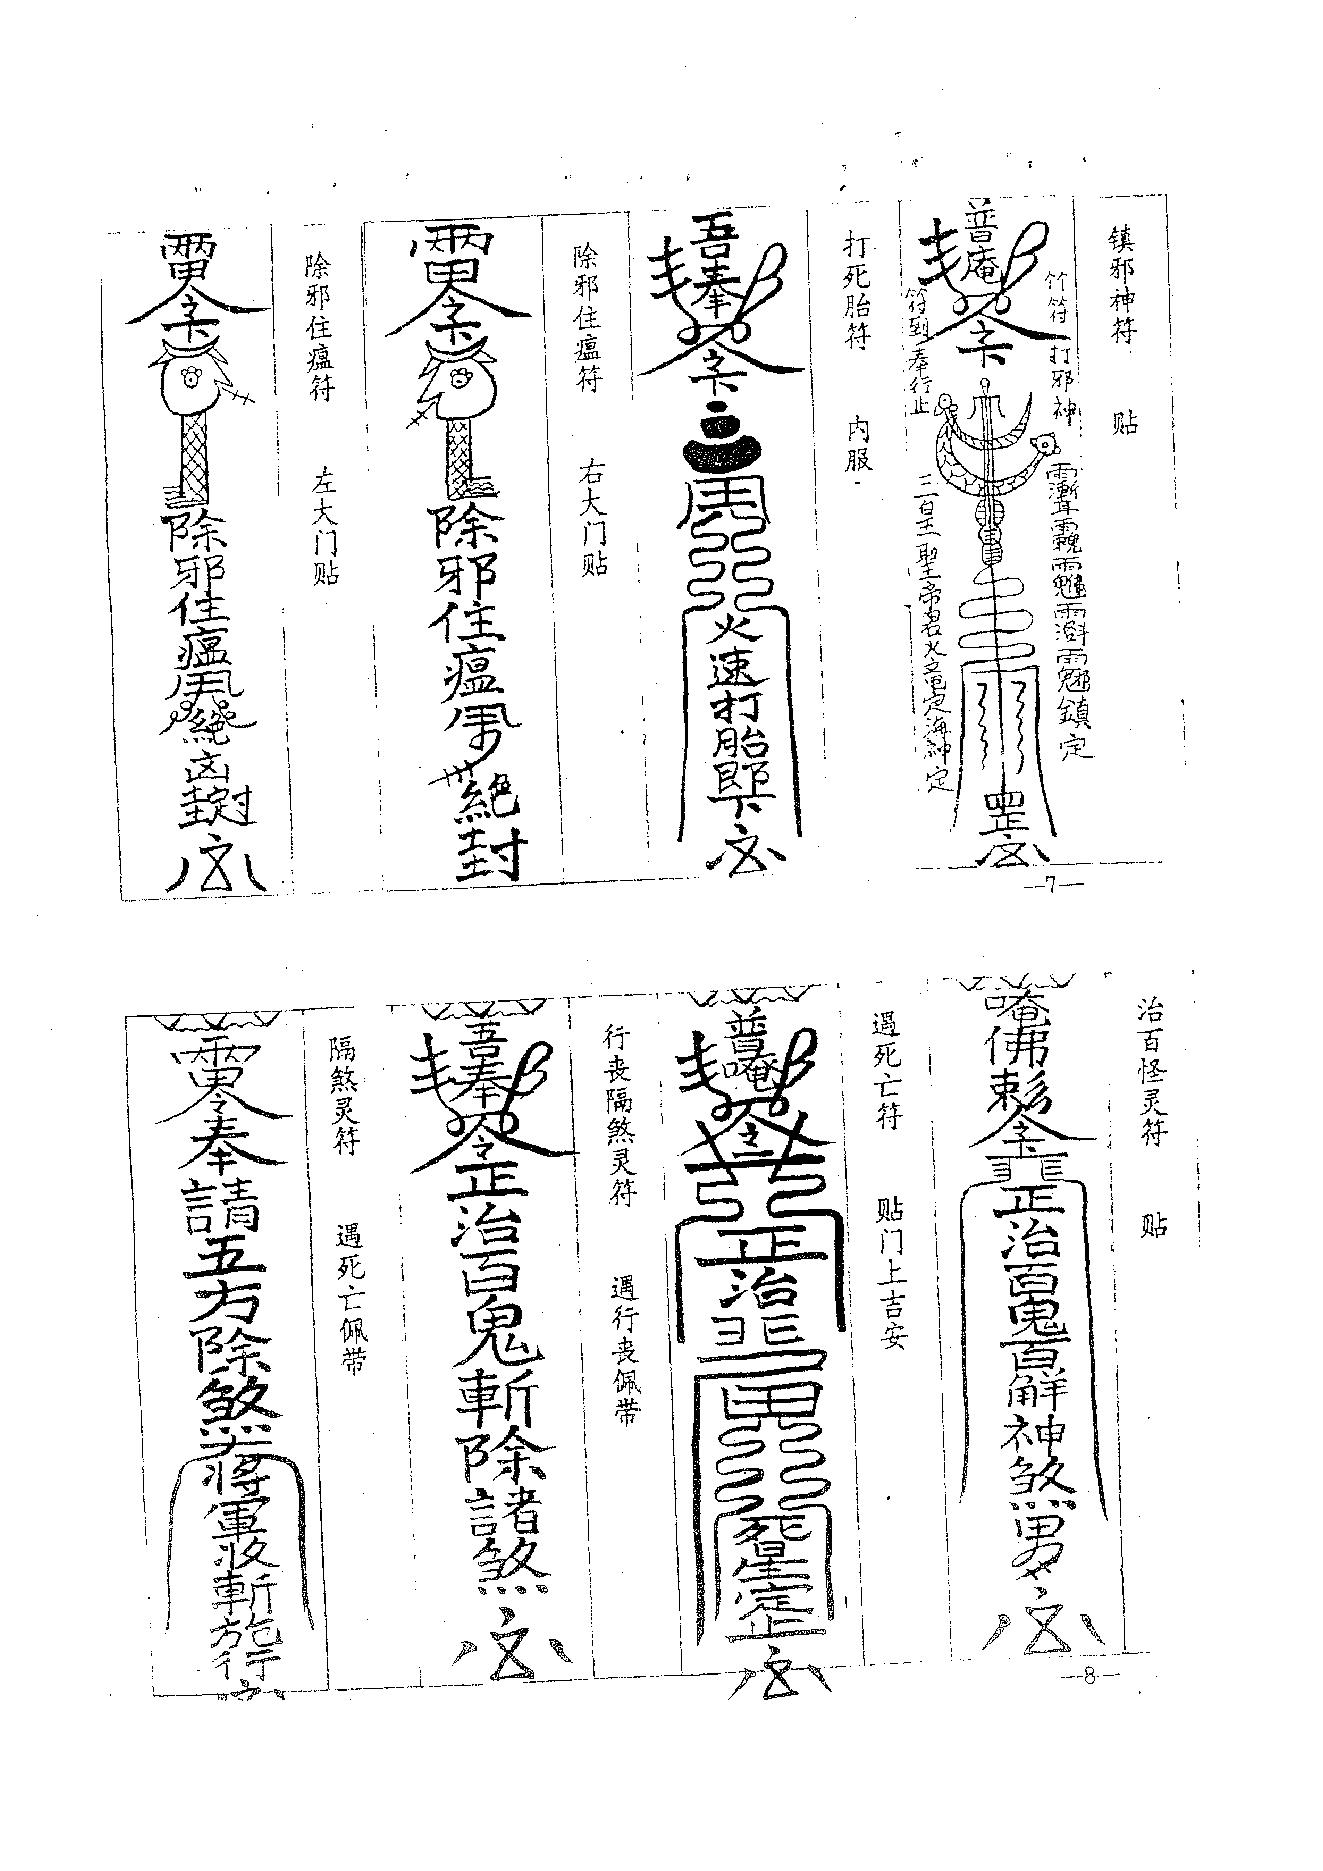 镇邪神符 贴
普庵
符到奉行止
打邪神
三皇聖帝君火竜定海神定
鎮定
罡
打死胎符 内服
吾奉
火速打胎即下
除邪住瘟符 右大门贴
雷令
除邪住瘟
絕封
除邪住瘟符 左大门贴
雷令
除邪住瘟
絕凶封
—7—
治百怪灵符 贴
唵佛敕令
正治百鬼百解神煞
遇死亡符 贴门上吉安
普唵
正治
定
行丧隔煞灵符 遇行丧佩带
吾奉令
正治百鬼斬除諸煞
隔煞灵符 遇死亡佩带
雷令奉請五方除煞
將軍收斬施行
—8—